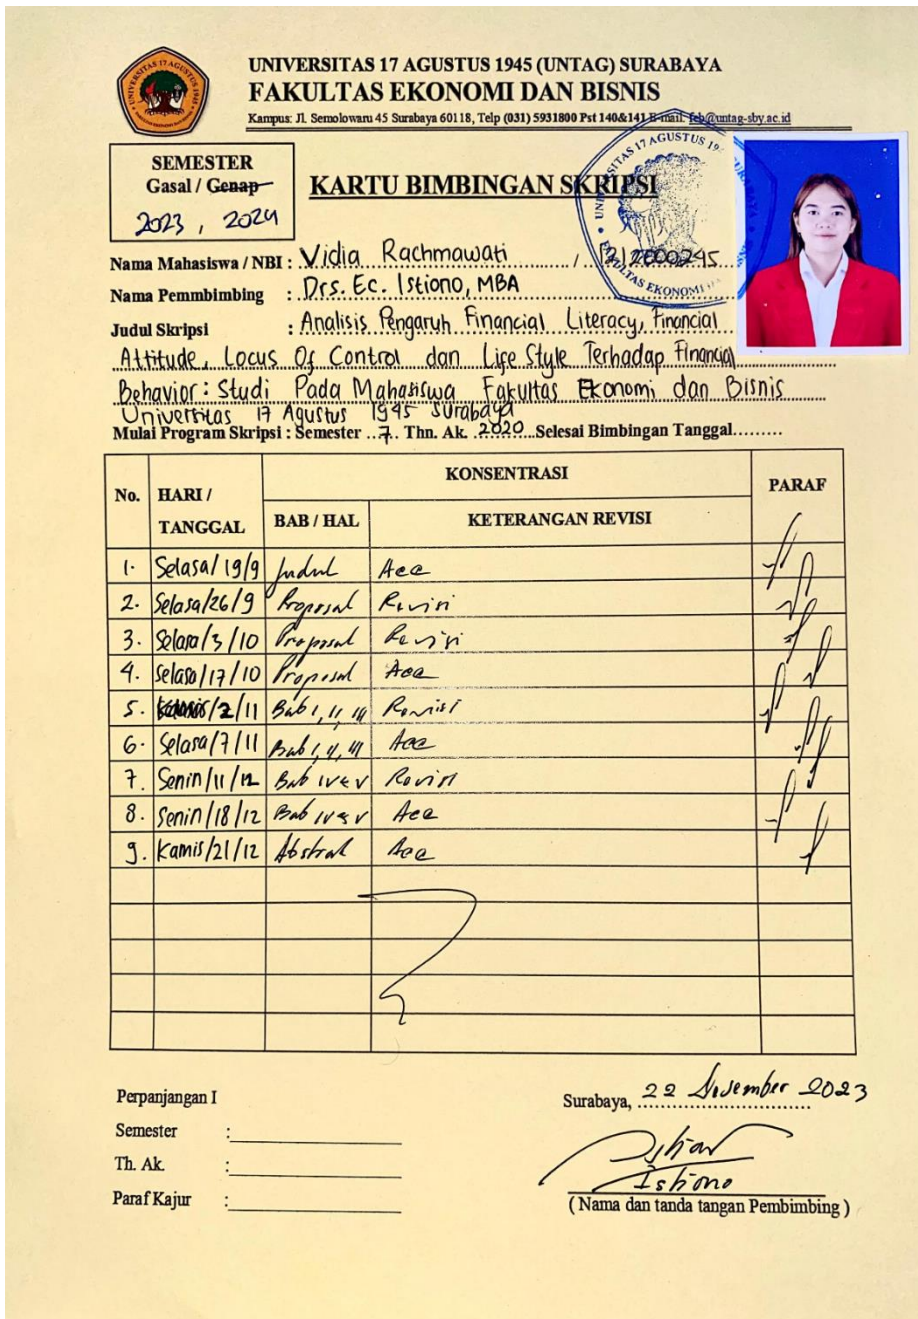 UNIVERSITAS 17 AGUSTUS 1945 (UNTAG) SURABAYA
FAKULTAS EKONOMI DAN BISNIS
Kampus: Jl. Semolowaru 45 Surabaya 60118, Telp (031) 5931800 Pst 140&141 E-mail. feb@untag-sby.ac.id
SEMESTER
Gasal / Genap
2023, 2024
KARTU BIMBINGAN SKRIPSI
Nama Mahasiswa / NBI : Vidia Rachmawati / 1212000245
Nama Pemmbimbing : Drs. Ec. Istiono, MBA
Judul Skripsi : Analisis Pengaruh Financial Literacy, Financial
Attitude, Locus Of Control dan Life Style Terhadap Financial
Behavior : Studi Pada Mahasiswa Fakultas Ekonomi dan Bisnis
Universitas 17 Agustus 1945 Surabaya
Mulai Program Skripsi : Semester ..7.. Thn. Ak. 2020...Selesai Bimbingan Tanggal.........
No. HARI / TANGGAL KONSENTRASI PARAF
BAB / HAL KETERANGAN REVISI
1. Selasa/19/9 Judul Acc
2. Selasa/26/9 Proposal Revisi
3. Selasa/3/10 Proposal Revisi
4. Selasa/17/10 Proposal Acc
5. Kamis/2/11 Bab I, II, III Revisi
6. Selasa/7/11 Bab I, II, III Acc
7. Senin/11/12 Bab IV & V Revisi
8. Senin/18/12 Bab IV & V Acc
9. Kamis/21/12 Abstrak Acc
Perpanjangan I
Semester :
Th. Ak. :
Paraf Kajur :
Surabaya, 22 Desember 2023
Istiono
( Nama dan tanda tangan Pembimbing )